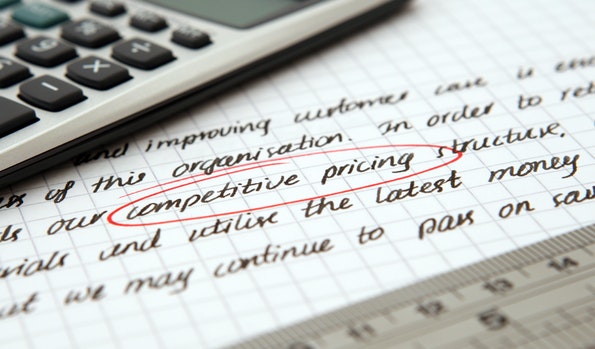 and improving customer care is
of this organisation. In order to
our competitive pricing structure.
and utilise the latest money
we may continue to pass on
11 12 13 14
5